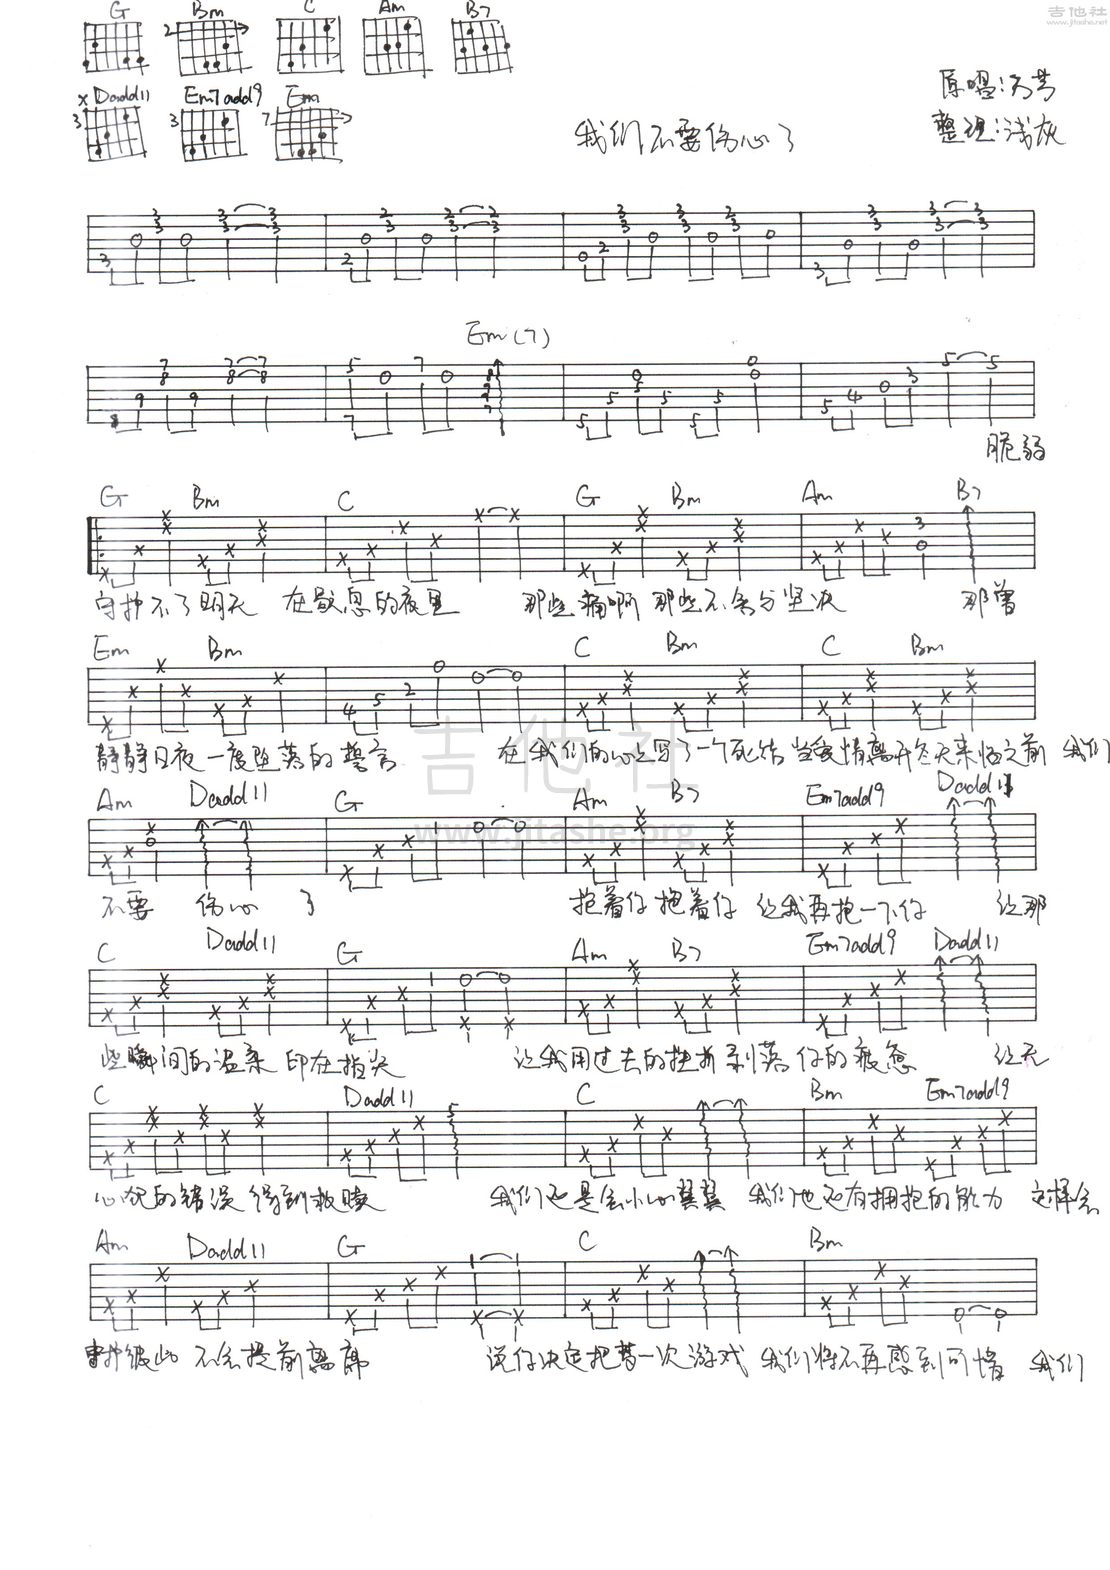 G Bm C Am B7
吉他社
www.jitashe.net
Dadd11 Em7add9 Em
原唱:万芳
我们不要伤心了
整理:浅灰
Em(7)
脆弱
G Bm C G Bm Am B7
守护不了明天 在歇息的夜里 那些痛啊 那些不舍与坚决 那曾
Em Bm C Bm C Bm
静静日夜一度坠落的誓言 在我们的心上写了一个死结 当爱情离开冬天来临之前 我们
吉他社
Am Dadd11 G Am B7 Em7add9 Dadd11
www.jitashe.org
不要 伤心 了 抱着你 抱着你 让我再抱一下你 让那
C Dadd11 G Am B7 Em7add9 Dadd11
些瞬间的温柔 印在指尖 让我用过去的挫折剥落你的疲惫 让无
C Dadd11 C Bm Em7add9
心犯的错误得到救赎 我们还是会小心翼翼 我们也还有拥抱的能力 这样会
Am Dadd11 G C Bm
彼此 不会提前离席 说你决定把梦一次游戏 我们将不再感到可惜 我们